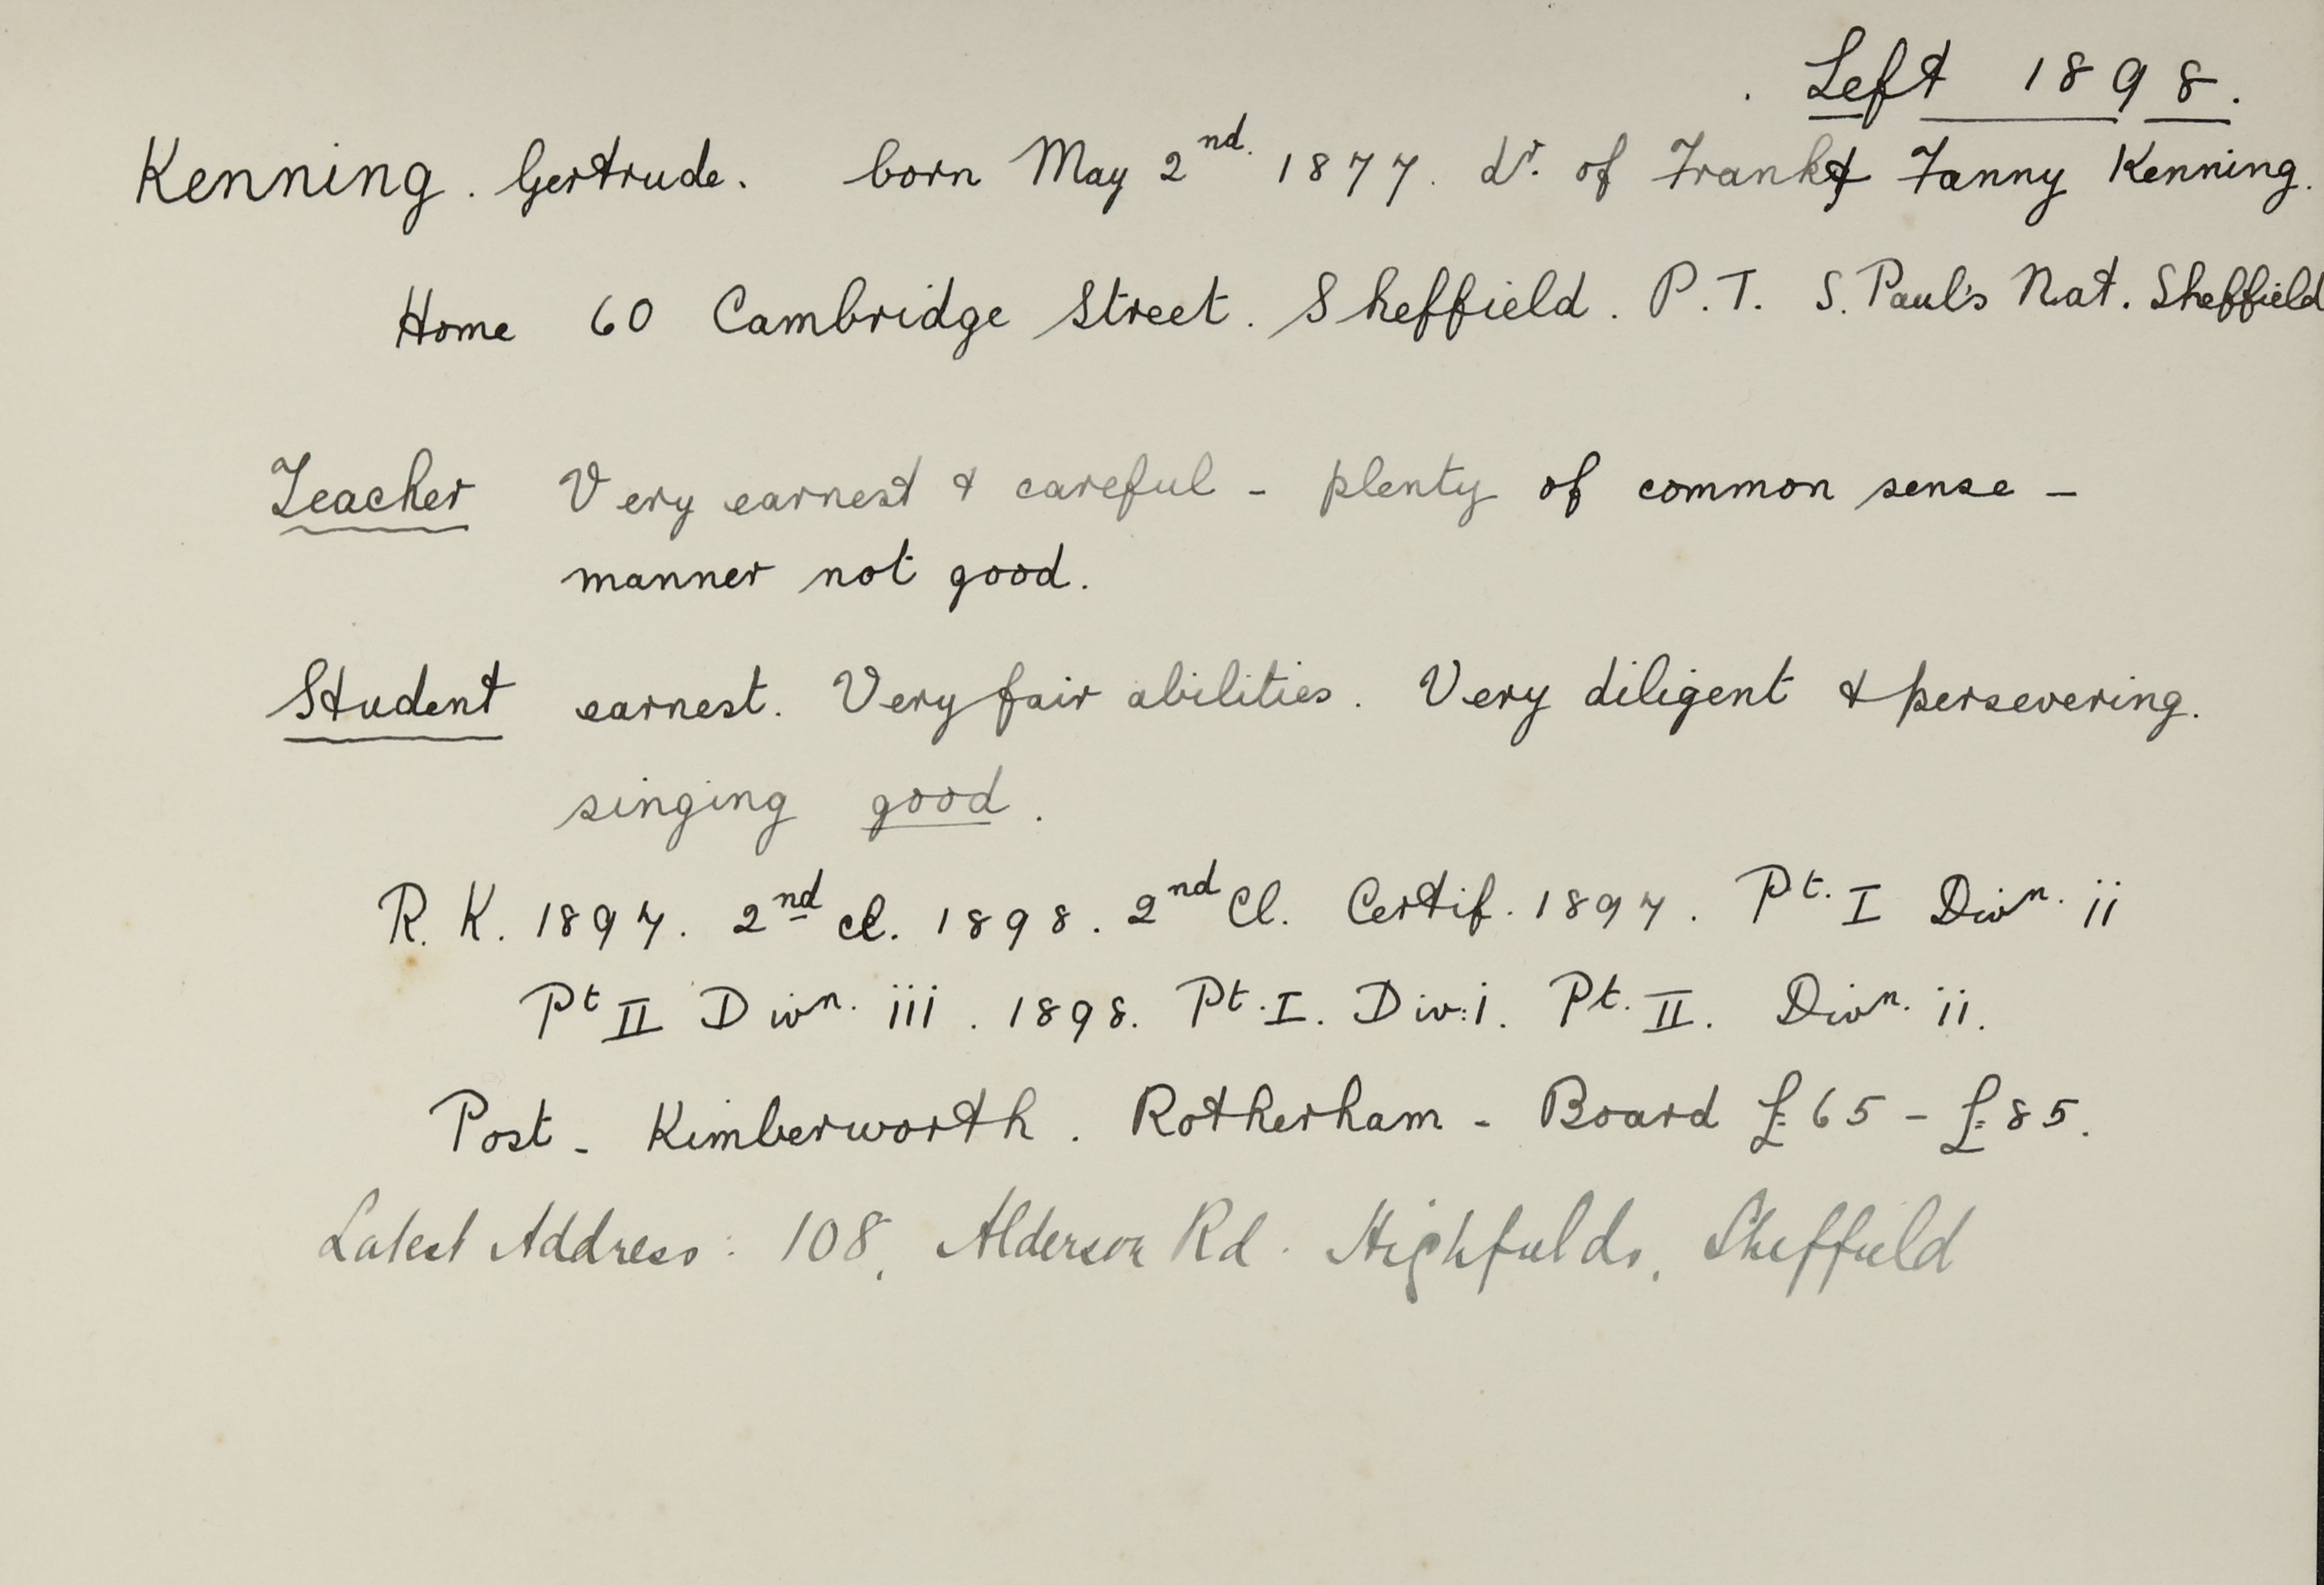 Left 1898.
Kenning. Gertrude. born May 2nd. 1877. dr. of Frank & Fanny Kenning.
Home 60 Cambridge Street. Sheffield. P.T. S. Paul's Nat. Sheffield
Teacher Very earnest & careful - plenty of common sense -
manner not good.
Student earnest. Very fair abilities. Very diligent & persevering.
singing good.
R. K. 1897. 2nd cl. 1898. 2nd Cl. Certif. 1897. Pt. I Divn. ii
Pt II Divn. iii. 1898. Pt. I. Div: i. Pt. II. Divn. ii.
Post - Kimberworth. Rotherham - Board £65 - £85.
Latest Address: 108, Alderson Rd. Highfields, Sheffield